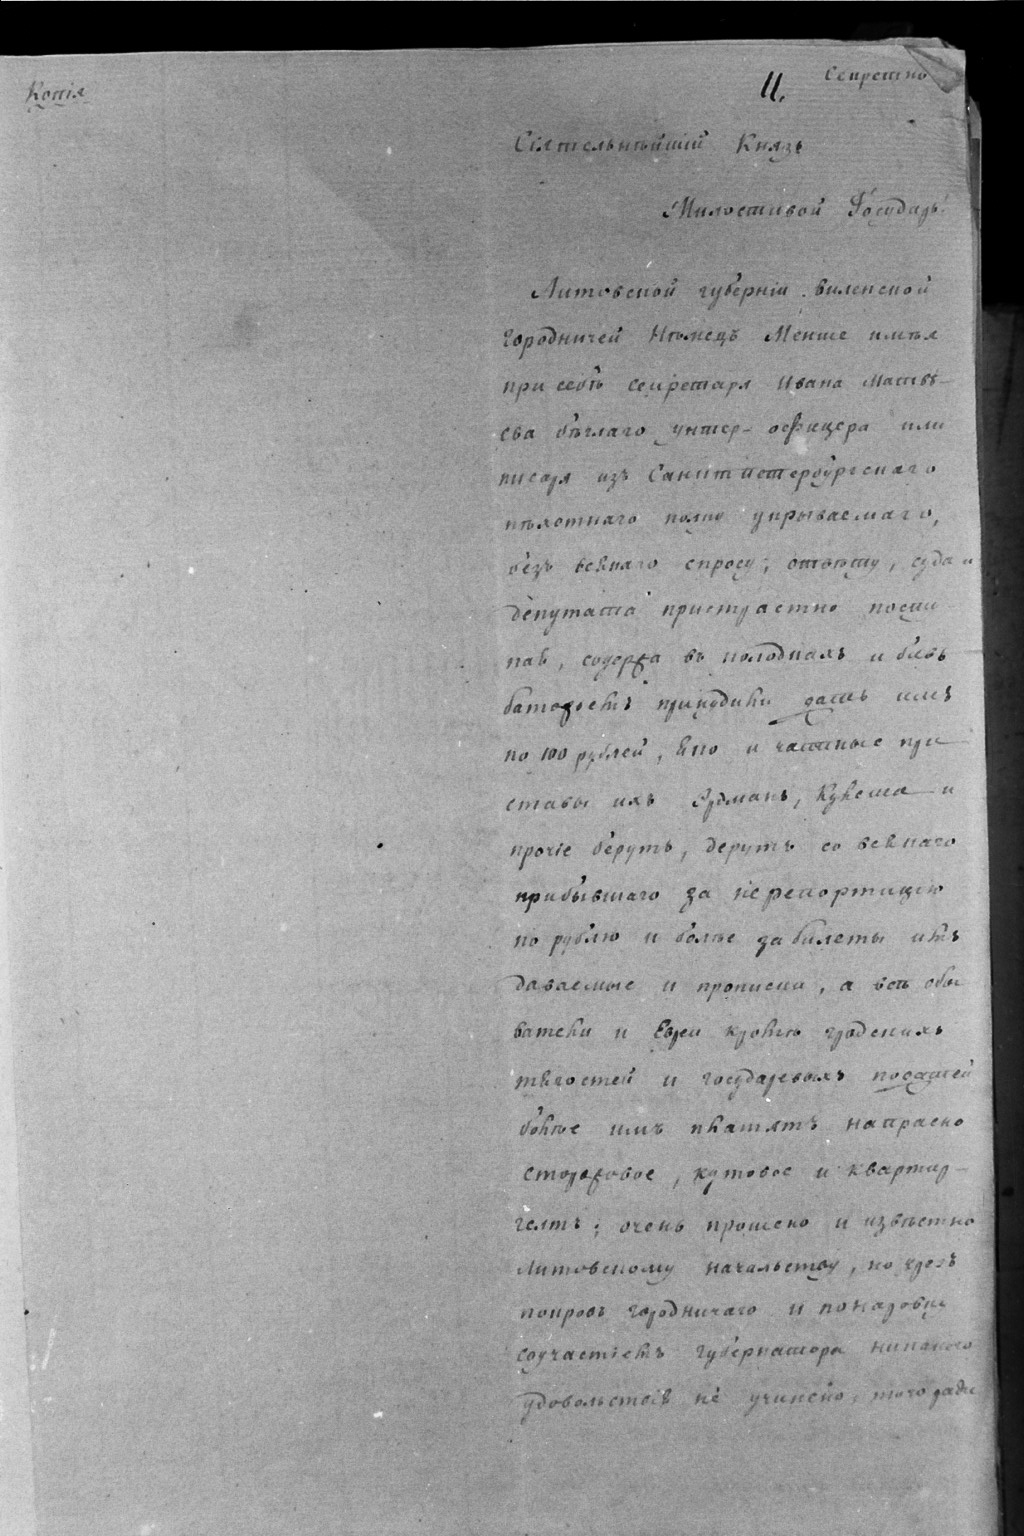 Копія
Секретно
11.
Сіятельнѣйшій Князь
Милостивой Государь!
Литовской губерніи виленской
городничей Нѣмецъ Менше имѣя
при себѣ секретаря Ивана Матвѣ-
ева бѣглаго унтер-офицера или
писаря изъ Санктпетербургскаго
пѣхотнаго полку укрываемаго,
безъ всякаго спросу, отвѣту, суда и
депутата пристрастно посту
пая, содержа въ колодкахъ и бивъ
батожьемъ принудили дать имъ
по 100 рублей, кто и частные при
ставы ихъ Эрдманъ, и
прочіе берутъ, дерутъ со всякаго
прибывшаго за нерепортицію
по рублю и болѣе за билеты имъ
даваемые и прописки, а всѣ обы
ватели и Евреи кромѣ градскихъ
тягостей и государевыхъ податей
болѣе имъ платятъ напрасно
сторожовое, кутовое и квартир-
гелтъ; очень прошено и извѣстно
литовскому начальству, но чрезъ
покровъ городничаго и понаровку
соучастіемъ губернатора никакого
удовольствія не учинено, того ради